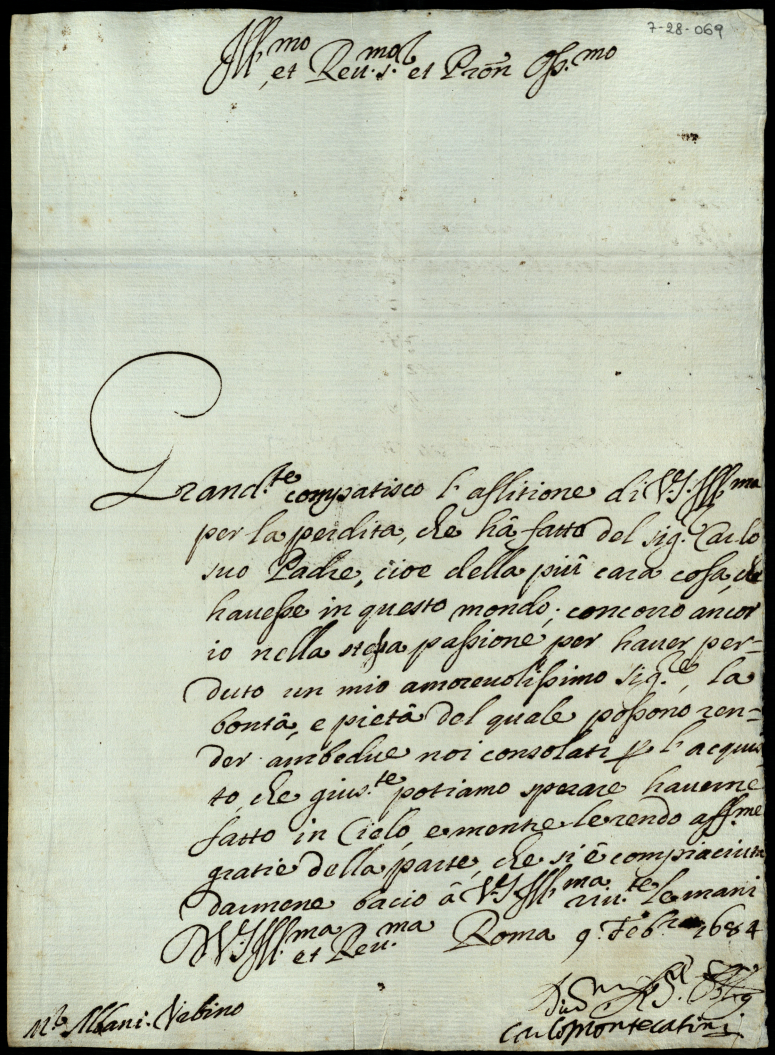 7-28-069
Ill.mo et Reu.mo S.r et Pron Oss.mo
Grand.te compatisco l'aflitione di V.S. Ill.ma
per la perdita, che hà fatto del sig.r Carlo
suo Padre, cioe della più cara cosa, che
hauesse in questo mondo; concorro ancor
io nella stessa passione per hauer per=
duto un mio amoreuolissimo sig.re, la
bontà, e pietà del quale possono ren=
der ambedue noi consolati p l'acquis
to, che gius.te potiamo sperare hauerne
fatto in Cielo, e mentre le rendo aff.me
gratie della parte, che si è compiaciuta
darmene bacio à V.S. Ill.ma riu.te le mani
D V.S. Ill.ma et Reu.ma Roma 9. Feb.ro 1684
Carlo Montecatini
M.r Albani. Vrbino